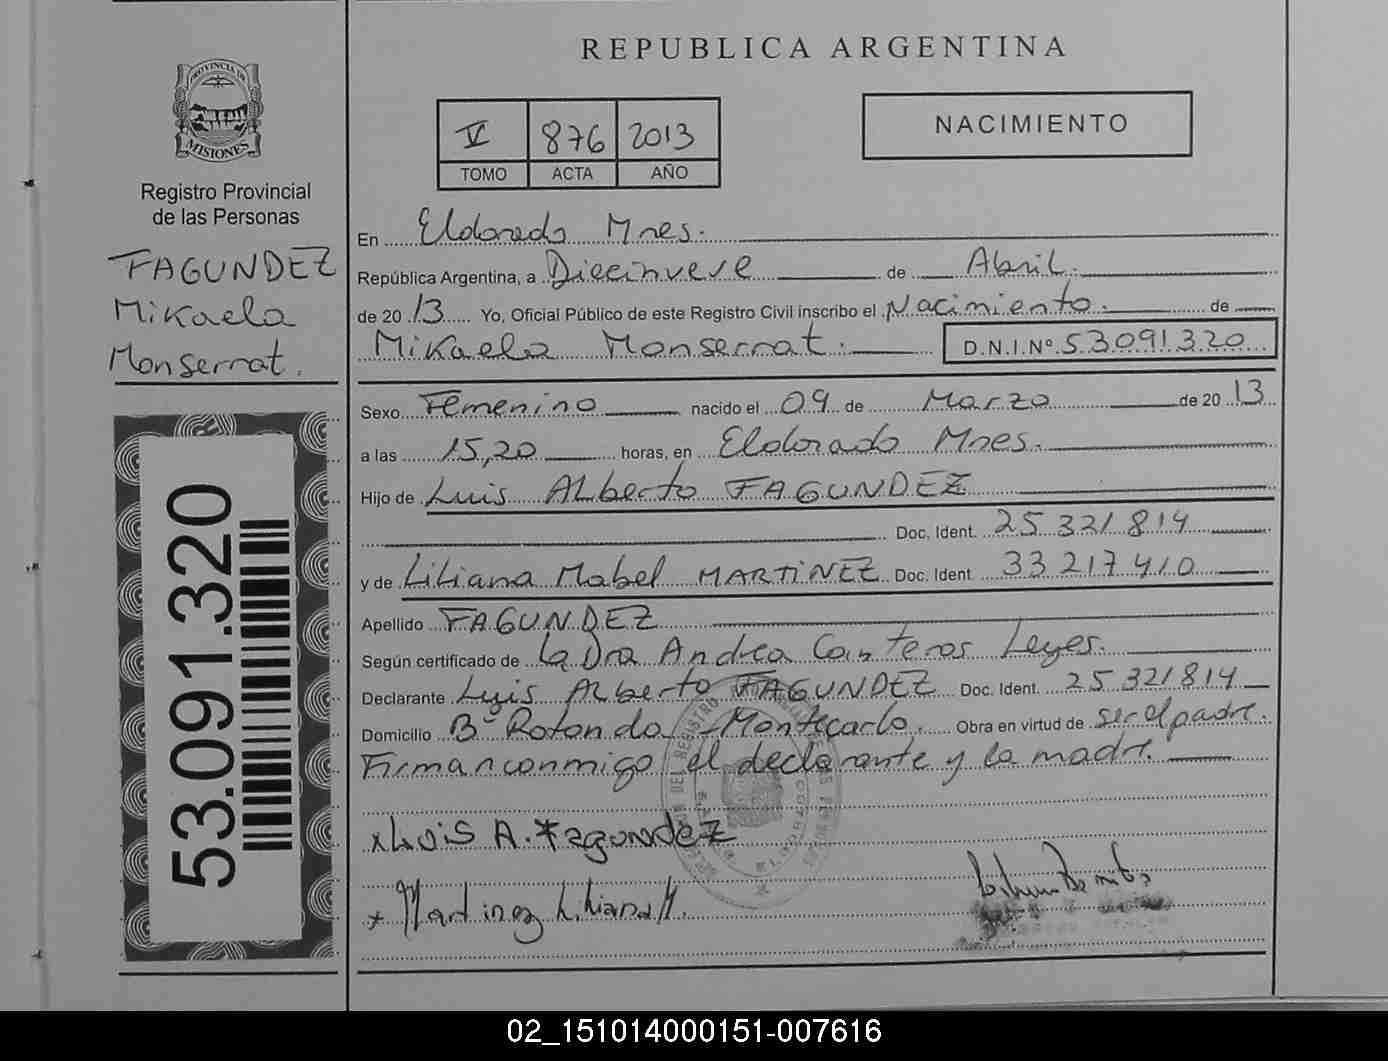 REPUBLICA ARGENTINA
PROVINCIA DE
MISIONES
Registro Provincial
de las Personas
FAGUNDEZ
Mikaela
Monserrat.
53.091.320
V 876 2013
TOMO ACTA AÑO
NACIMIENTO
En Eldorado Mnes.
República Argentina, a Diecinueve de Abril.
de 2013 Yo, Oficial Público de este Registro Civil inscribo el Nacimiento. de
Mikaela Monserrat. D.N.I.Nº 53091320
Sexo Femenino nacido el 09 de Marzo de 2013
a las 15,20 horas, en Eldorado Mnes.
Hijo de Luis Alberto FAGUNDEZ
Doc. Ident. 25 321 814
y de Liliana Mabel MARTINEZ Doc. Ident. 33 217 410
Apellido FAGUNDEZ
Según certificado de La Dra Andrea Canteros Leyes.
Declarante Luis Alberto FAGUNDEZ Doc. Ident. 25 321 814
Domicilio Bº Rotondo - Montecarlo. Obra en virtud de ser el padre.
Firman conmigo el declarante y la madre.
x Luis A. Fagundez
x Martinez Liliana M.
02_151014000151-007616